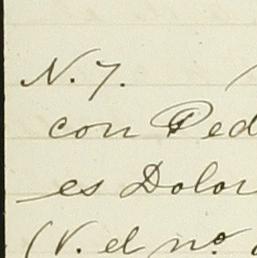 N. 7.
con Ped
es Dolor
(V. el nº